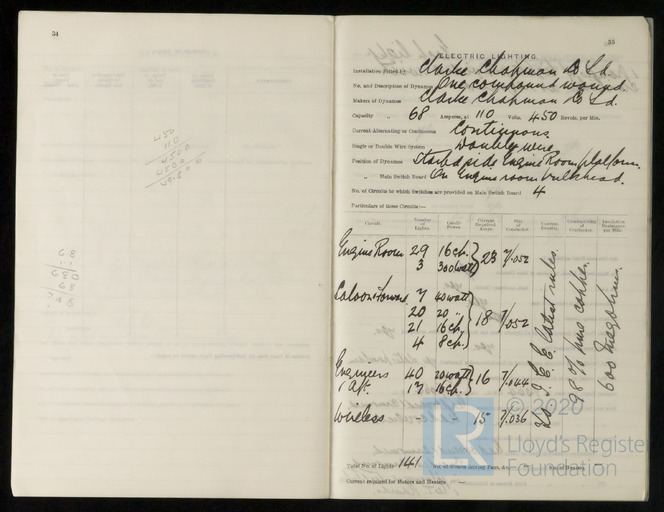 34
450
110
4500
450
49500
68
680
68
35
ELECTRIC LIGHTING
Installation Fitted by Clarke Chapman & Co Ld.
No. and Description of Dynamos One compound wound.
Makers of Dynamos Clarke Chapman & Co Ld.
Capacity „ 68 Amperes, at 110 Volts, 450 Revols. per Min.
Current Alternating or Continuous Continuous
Single or Double Wire System Double wire
Position of Dynamos Starboard side Engine Room platform.
„ Main Switch Board On Engine room bulkhead.
No. of Circuits to which Switches are provided on Main Switch Board 4
Particulars of these Circuits:—
Circuit. Number of Lights. Candle Power. Current Required Amps. Size of Conductor. Current Density. Conductivity of Conductor. Insulation Resistance per Mile.
Engine Room 29 16 cp. 23 7/.052
3 300 watt
Saloon & Forward 7 40 watt
20 20 „ 18 7/052
21 16 cp.
4 8 cp.
Engineers 40 20 watt 16 7/.044
& Aft. 17 16 cp.
Wireless 15 7/.036
To I. E. E. latest rules.
98 % pure copper.
600 Megohms.
Total No. of Lights 141 No. of Motors driving Fans, &c. — No. of Heaters —
Current required for Motors and Heaters —
© 2020
LR
Lloyd's Register
Foundation